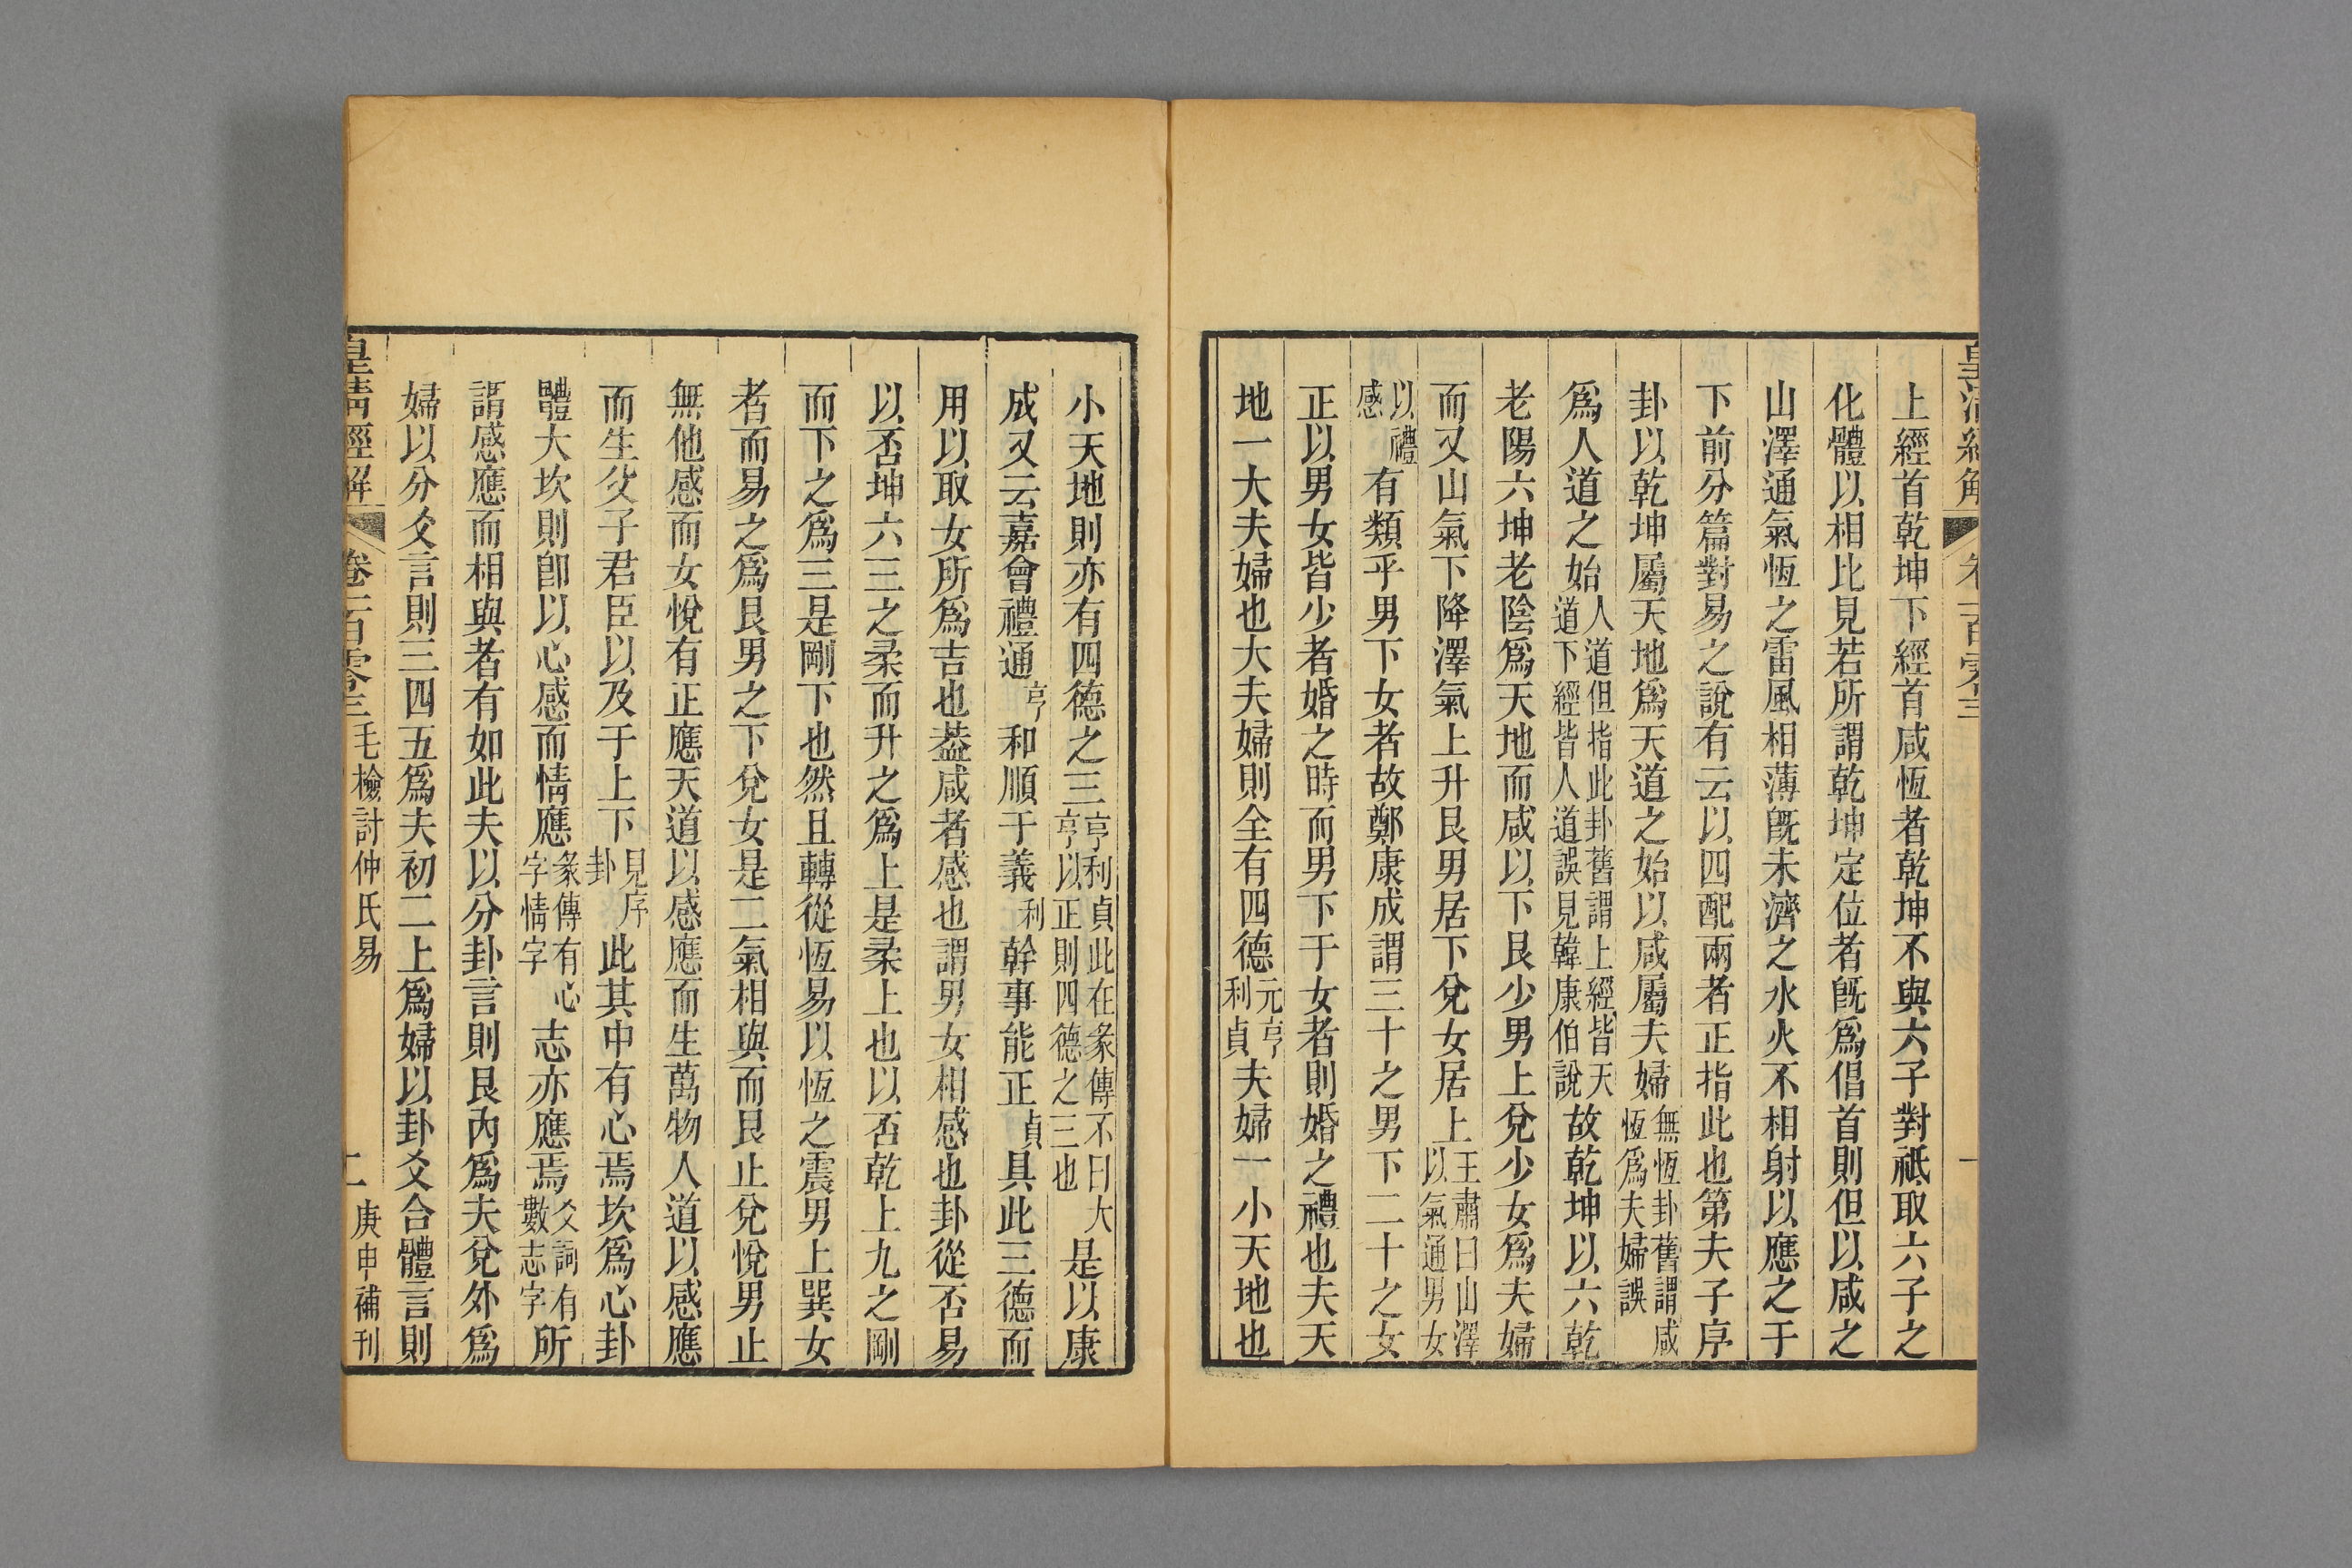 上經首乾坤下經首咸恆者乾坤不與六子對祇取六子之
化體以相比見若所謂乾坤定位者旣爲倡首則但以咸之
山澤通氣恆之雷風相薄旣未濟之水火不相射以應之于
下前分篇對易之說有云以四配兩者正指此也第夫子序
卦以乾坤屬天地爲天道之始以咸屬夫婦無恆卦舊謂咸恆爲夫婦誤
爲人道之始人道但指此卦舊謂上經皆天道下經皆人道誤見韓康伯說故乾坤以六乾
老陽六坤老陰爲天地而咸以下艮少男上兌少女爲夫婦
而又山氣下降澤氣上升艮男居下兌女居上王肅曰山澤以氣通男女
以禮感有類乎男下女者故鄭康成謂三十之男下二十之女
正以男女皆少者婚之時而男下于女者則婚之禮也夫天
地一大夫婦也大夫婦則全有四德元亨利貞夫婦一小天地也
小天地則亦有四德之三亨利貞此在彖傳不曰大亨以正則四德之三也是以康
成又云嘉會禮通亨和順于義利幹事能正貞具此三德而
用以取女所爲吉也葢咸者感也謂男女相感也卦從否易
以否坤六三之柔而升之爲上是柔上也以否乾上九之剛
而下之爲三是剛下也然且轉從恆易以恆之震男上巽女
者而易之爲艮男之下兌女是二氣相與而艮止兌悅男止
無他感而女悅有正應天道以感應而生萬物人道以感應
而生父子君臣以及于上下見序卦此其中有心焉坎爲心卦
體大坎則卽以心感而情應彖傳有心字情字志亦應焉爻詞有數志字所
謂感應而相與者有如此夫以分卦言則艮內爲夫兌外爲
婦以分爻言則三四五爲夫初二上爲婦以卦爻合體言則
皇清經解
卷一百零三毛檢討仲氏易
二
庚申補刊